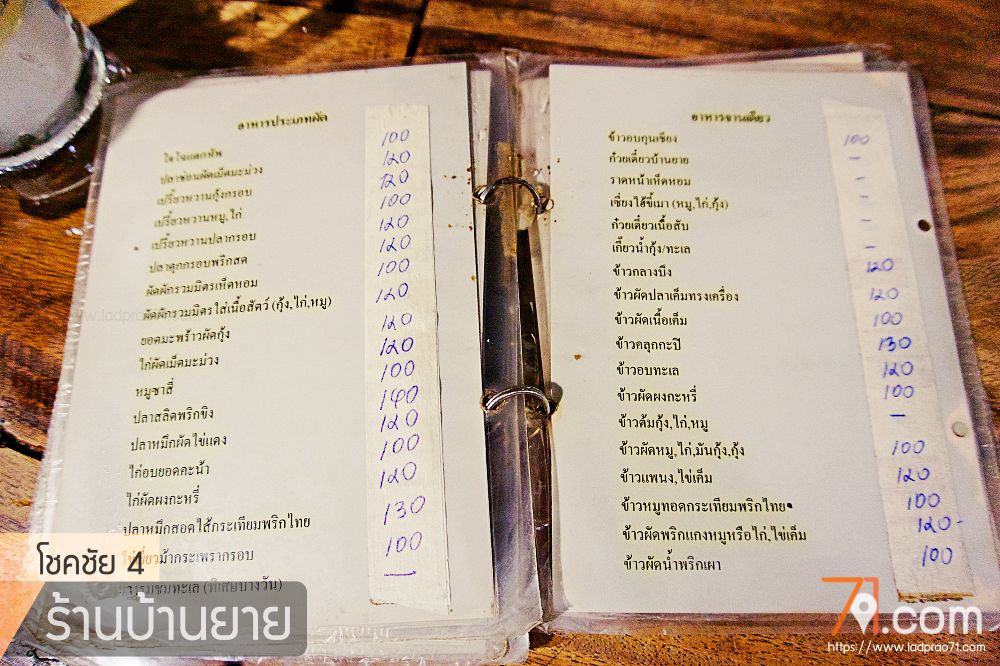 อาหารประเภทผัด
แตกทัพ 100
ปลาช่อนผัดเม็ดมะม่วง 120
เปรี้ยวหวานกุ้งกรอบ 120
เปรี้ยวหวานหมู,ไก่ 100
เปรี้ยวหวานปลากรอบ 120
ปลาดุกกรอบพริกสด 120
ผัดผักรวมมิตรเห็ดหอม 100
ผัดผักรวมมิตรใส่เนื้อสัตว์ (กุ้ง,ไก่,หมู) 120
ยอดมะพร้าวผัดกุ้ง 120
ไก่ผัดเม็ดมะม่วง 120
หมูซาสี่ 100
ปลาสลิดพริกขิง 140
ปลาหมึกผัดไข่แดง 120
ไก่อบยอดคะน้า 100
ไก่ผัดผงกะหรี่ 120
ปลาหมึกสอดไส้กระเทียมพริกไทย 130
ไข่เยี่ยวม้ากระเพรากรอบ 100
(พิเศษบางวัน) —
อาหารจานเดียว
ข้าวอบกุนเชียง 100
ก๋วยเตี๋ยวบ้านยาย -
ราดหน้าเห็ดหอม -
เซี่ยงไฮ้ขี้เมา (หมู,ไก่,กุ้ง) -
ก๋วยเตี๋ยวเนื้อสับ -
เกี๊ยวน้ำกุ้ง/ทะเล -
ข้าวกลางบึง 120
ข้าวผัดปลาเค็มทรงเครื่อง 120
ข้าวผัดเนื้อเค็ม 100
ข้าวคลุกกะปิ 130
ข้าวอบทะเล 120
ข้าวผัดผงกะหรี่ 100
ข้าวต้มกุ้ง,ไก่,หมู -
ข้าวผัดหมู,ไก่,มันกุ้ง,กุ้ง 100
ข้าวแพนง,ไข่เค็ม 120
ข้าวหมูทอดกระเทียมพริกไทย 100
ข้าวผัดพริกแกงหมูหรือไก่,ไข่เค็ม 120-
ข้าวผัดน้ำพริกเผา 100
www.ladprao71.com
โชคชัย 4
ร้านบ้านยาย
71.com
https://www.ladprao71.com